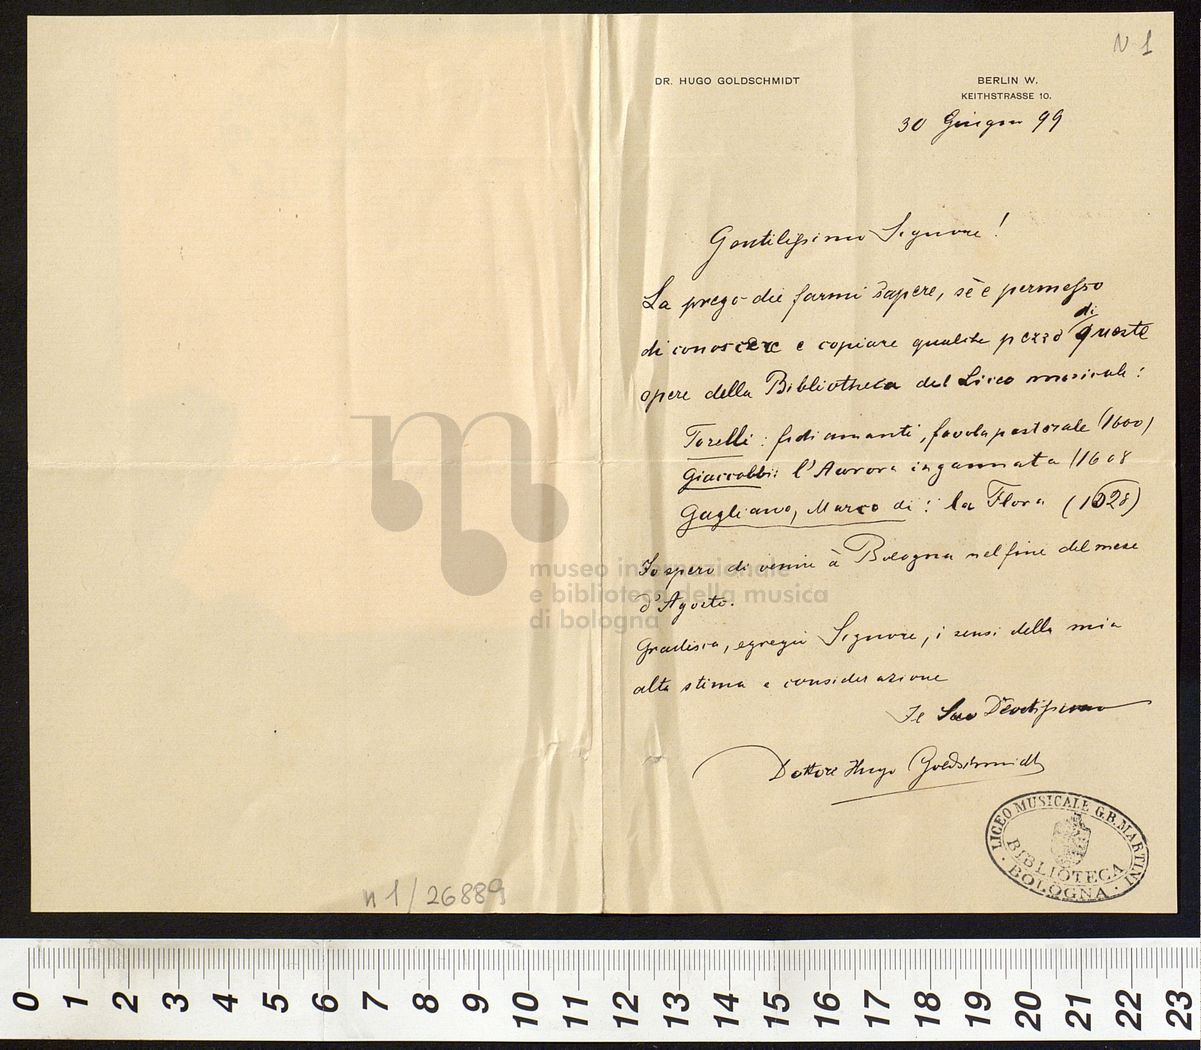 N 1
DR. HUGO GOLDSCHMIDT
BERLIN W.
KEITHSTRASSE 10.
30 Giugno 99
Gentilissimo Signore!
La prego die farmi sapere, sè è permesso
di conoscere e copiare qualche pezzo di queste
opere della Bibliotheca del Liceo musicale:
Torelli: fidi amanti, favola pastorale (1600)
Giaccobbi: l'Aurora ingannata (1608
Gagliano, Marco di: la Flora (1628)
Io spero di venire à Bologna nel fine del mese
d'Agosto.
Gradisca, egregio Signore, i sensi della mia
alta stima e considerazione
Il Suo Devotissimo
Dottore Hugo Goldschmidt
LICEO MUSICALE G.B. MARTINI
BIBLIOTECA
· BOLOGNA ·
n 1 / 26889
museo internazionale
e biblioteca della musica
di bologna
0 1 2 3 4 5 6 7 8 9 10 11 12 13 14 15 16 17 18 19 20 21 22 23